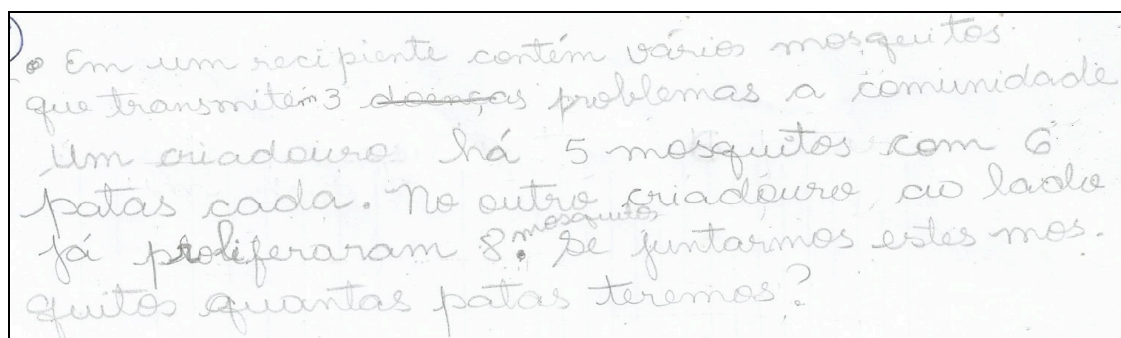 • Em um recipiente contém vários mosquitos
que transmitem 3 doenças problemas a comunidade
Um criadouro há 5 mosquitos com 6
patas cada. No outro criadouro ao lado
já proliferaram 8 mosquitos. Se juntarmos estes mos-
quitos quantas patas teremos?